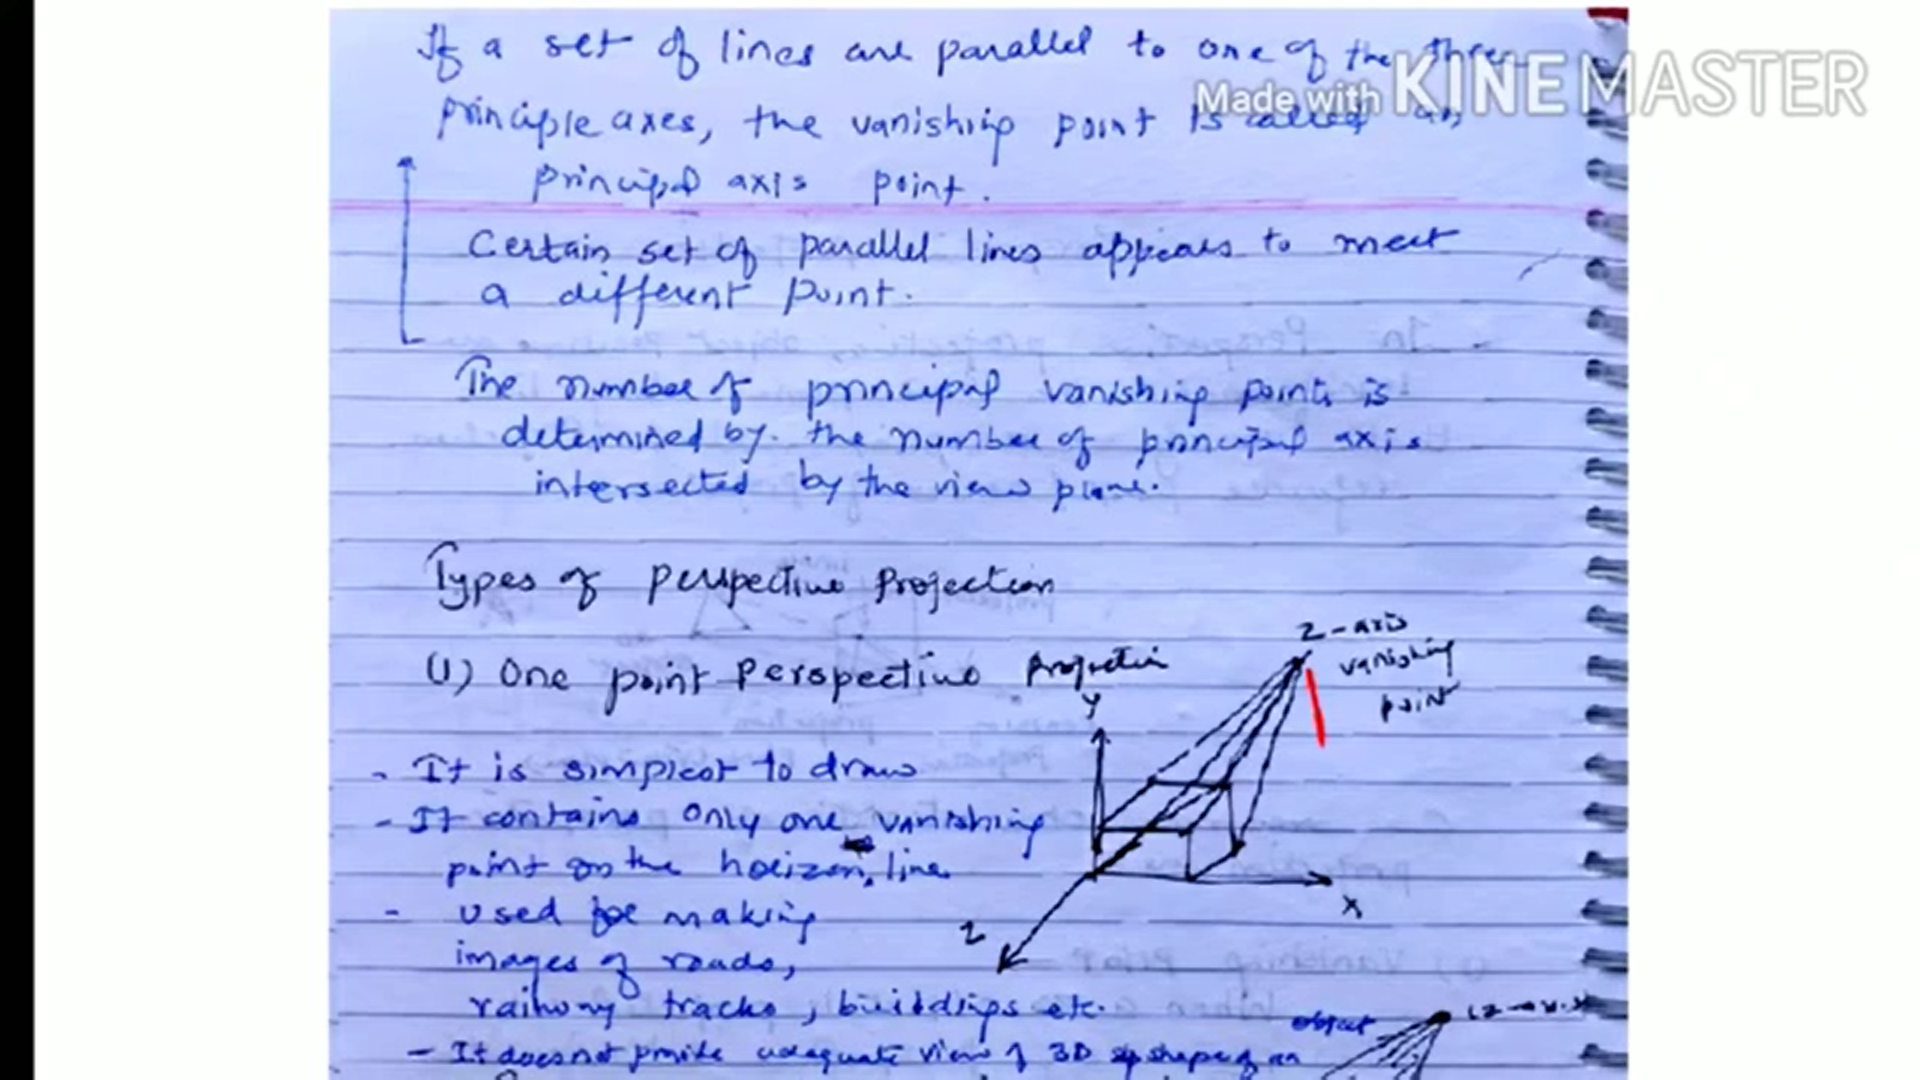 If a set of lines are parallel to one of the three
Made with KINEMASTER
principle axes, the vanishing point is called an
principal axis point.
Certain set of parallel lines appears to meet
a different point.
The number of principal vanishing point is
determined by the number of principal axis
intersected by the view plane.
Types of Perspective Projection
(1) One point Perspective Projection
Z-axis
vanishing
point
Y
- It is simplest to draw
- It contains only one vanishing
point on the horizon, line
X
- used for making
Z
images of roads,
railway tracks, buildings etc.
object
- It does not provide adequate view of 3D shape of an